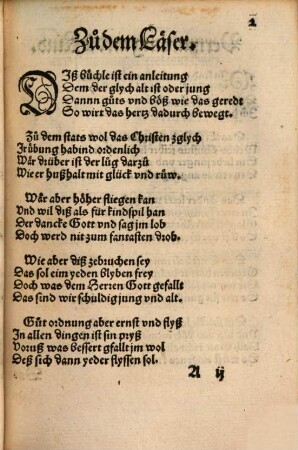 Zů dem Läser.
DIß büchle ist ein anleitung
Dem der glych alt ist oder jung
Dannn gůts vnd bößs wie das geredt
So wirt das hertz dadurch bewegt.
Zů dem stats wol das Christen zglych
Ir übung habind ordenlich
Wär drüber ist der lůg darzů
Wie er hußhalt mit glück vnd růw.
Wär aber höher stiegen kan
Vnd wil diß als für kindspil han
Der dancke Gott vnd sag jm lob
Doch werd nit zum fantasten drob.
Wie aber diß zebruchen sey
Das sol eim yeden blyben frey
Doch was dem Herren Gott gefallt
Das sind wir schuldig jung vnd alt.
Gůt ordnung aber ernst vnd flyß
In allen dingen ist sin pryß
Voruß was bessert gfallt jm wol
Deß sich dann yeder flyssen sol.
A ij